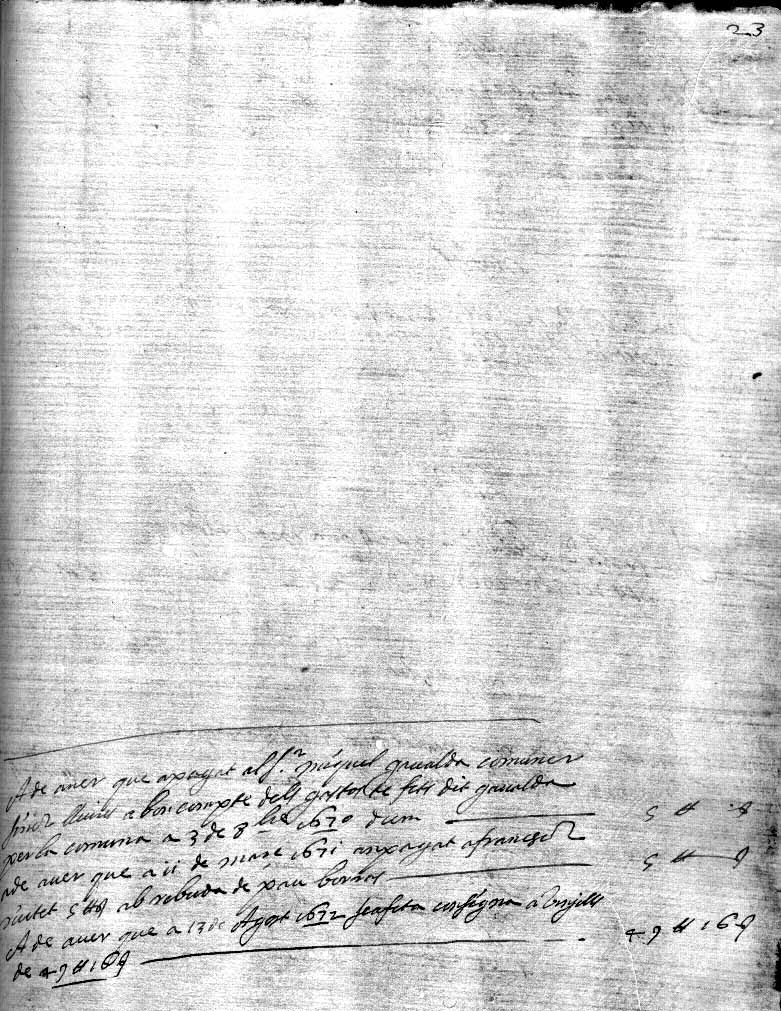 23
A de auer que a pagat al Sr. miquel gaualda comuner
sinch lliures a bon compte dels gastos te fets dit gaualda
per la comuna a 3 de 8bre 1670 dem 5 ₶ 8
a de auer que a 11 de mars 1671 an pagat a francesch
5 ₶ ab rebuda de pau borras 5 ₶ 8
A de auer que a 13 de Agost 1672 se a feta consigna a
de 49 ₶ 16 8 49 ₶ 16 8